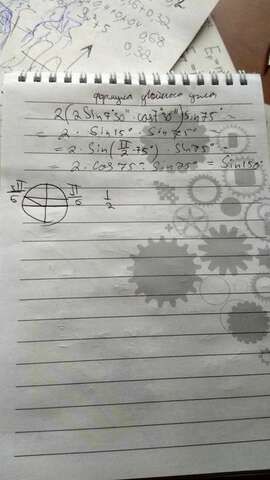 0,68
0,32
формула двойного угла
2(2Sin7°30' cos7°30')Sin75° =
= 2 · Sin15° · Sin75° =
= 2 · Sin(π/2 - 75°) · Sin75° =
2 · cos75° · Sin75° = Sin150°
5π/6 π/6 1/2